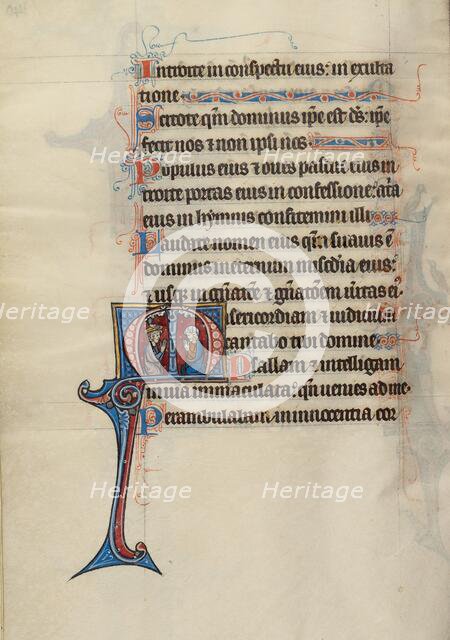 Introite in conspectu eius: in exulta
tione
Scitote qm dominus ipe est ds: ipe
fecit nos & non ipsi nos
Populus eius & oues pascue eius in
troite portas eius in confessione: atria
eius in hymnis confitemini illi
Laudate nomen eius qm suauis e
dominus in eternum misedia eius:
& usq in gnatoe & gnatoem ueritas ei
Misericordiam & iudicium
cantabo tibi domine
Psallam & intelligam
in uia immaculata: qn uenies ad me
Perambulabam in innocentia cor
Heritage Heritage
Heritage Heritage
Heritage Heritage